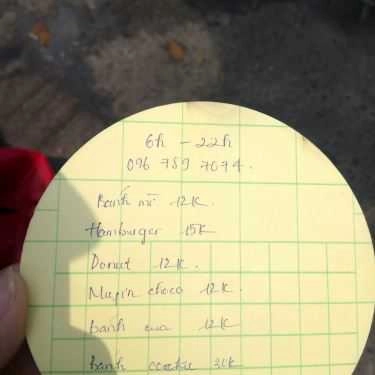 6h - 22h
096 759 7074.
Bánh mì 12K
Hamburger 15K
Donut 12K.
Mupin choco 12K.
bánh cua 12K
bánh cookie 30K